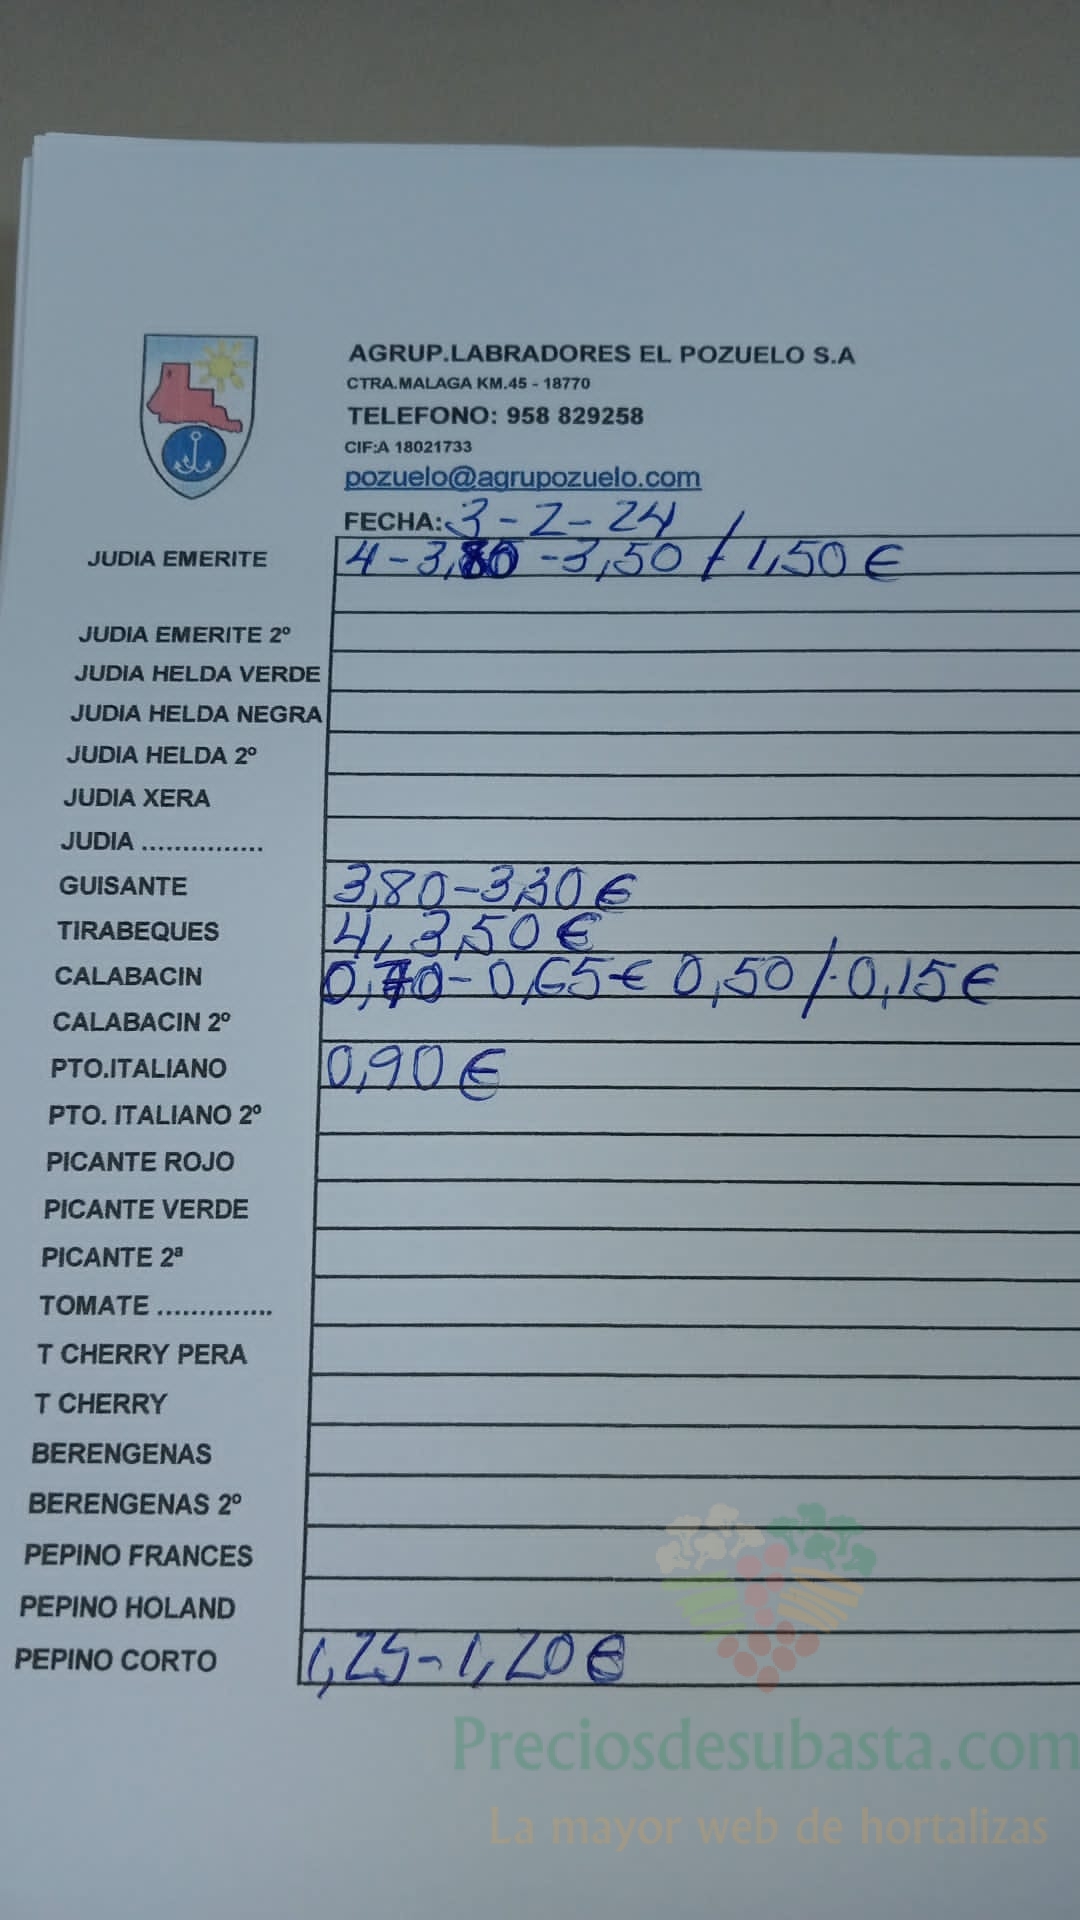 AGRUP.LABRADORES EL POZUELO S.A
CTRA.MALAGA KM.45 - 18770
TELEFONO: 958 829258
CIF:A 18021733
pozuelo@agrupozuelo.com
FECHA: 3-2-24
JUDIA EMERITE 4-3,80-3,50 / 1,50€
JUDIA EMERITE 2º
JUDIA HELDA VERDE
JUDIA HELDA NEGRA
JUDIA HELDA 2º
JUDIA XERA
JUDIA ...............
GUISANTE 3,80-3,30€
TIRABEQUES 4, 3,50€
CALABACIN 0,70-0,65€ 0,50/-0,15€
CALABACIN 2º
PTO.ITALIANO 0,90€
PTO. ITALIANO 2º
PICANTE ROJO
PICANTE VERDE
PICANTE 2ª
TOMATE ..............
T CHERRY PERA
T CHERRY
BERENGENAS
BERENGENAS 2º
PEPINO FRANCES
PEPINO HOLAND
PEPINO CORTO 1,25-1,20€
Preciosdesubasta.com
La mayor web de hortalizas